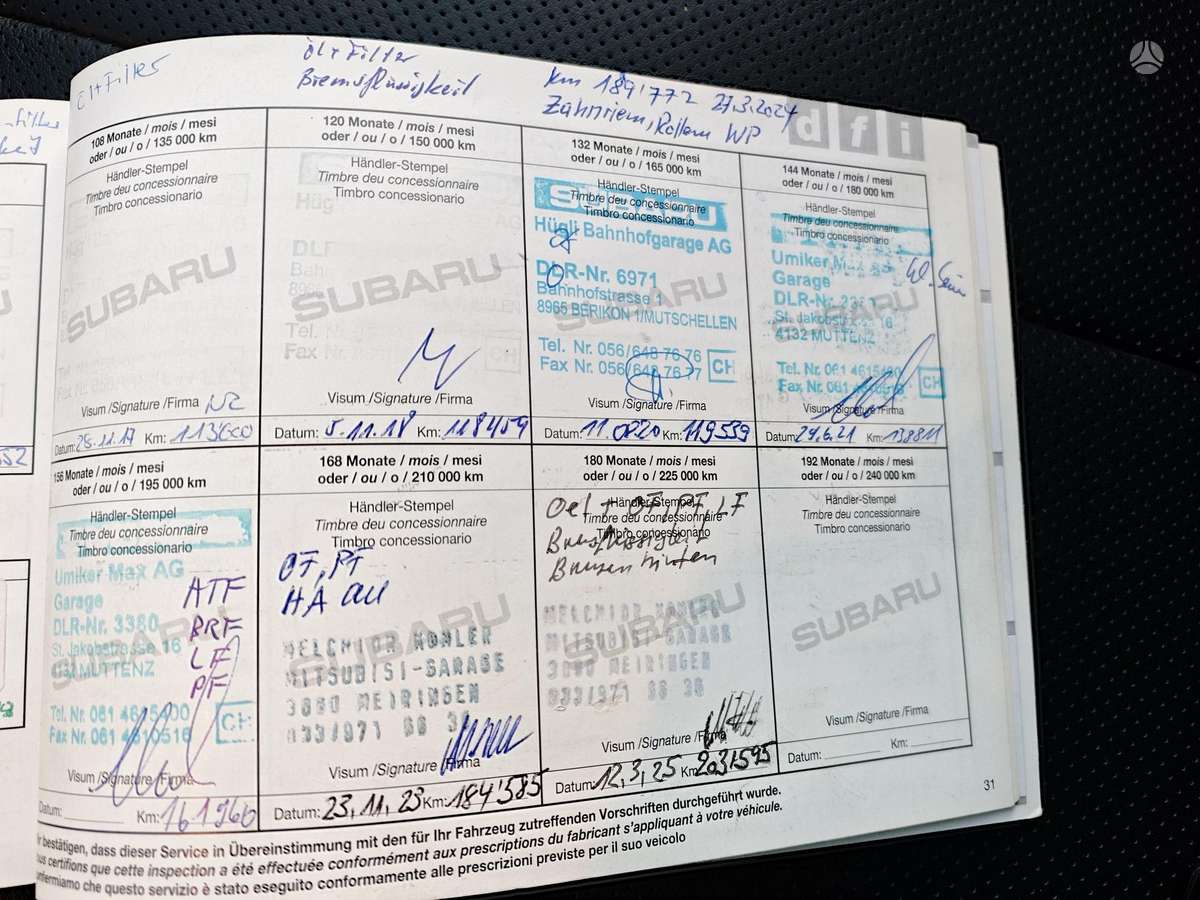 Öl+Filter
Bremsflüssigkeit
km 189'772 27.3.2024
Zahnriem, Rollen WP
d f i
108 Monate / mois / mesi
oder / ou / o / 135 000 km
Händler-Stempel
Timbre du concessionnaire
Timbro concessionario
SUBARU
Visum /Signature /Firma NZ
Datum: 28.11.17 Km: 113600
120 Monate / mois / mesi
oder / ou / o / 150 000 km
Händler-Stempel
Timbre du concessionnaire
Timbro concessionario
SUBARU
Tel.
Fax Nr.
CH
Visum /Signature /Firma
Datum: 5.11.18 Km: 118459
132 Monate / mois / mesi
oder / ou / o / 165 000 km
Händler-Stempel
Timbre du concessionnaire
Timbro concessionario
SUBARU
Hügli Bahnhofgarage AG
DLR-Nr. 6971
Bahnhofstrasse 1
8965 BERIKON 1/MUTSCHELLEN
SUBARU
Tel. Nr. 056/648 76 76
Fax Nr. 056/648 76 77
CH
Visum /Signature /Firma
Datum: 11.0220 Km: 119539
144 Monate / mois / mesi
oder / ou / o / 180 000 km
Händler-Stempel
Timbre du concessionnaire
Timbro concessionario
Umiker Max AG
Garage
DLR-Nr.
St. Jakobstrasse 16
4132 MUTTENZ
SUBARU
Tel. Nr. 061
Fax Nr. 061
CH
Visum /Signature /Firma
Datum: 29.6.21 Km: 138811
156 Monate / mois / mesi
oder / ou / o / 195 000 km
Händler-Stempel
Timbre du concessionnaire
Timbro concessionario
Umiker Max AG
Garage
DLR-Nr. 3380
St. Jakobstrasse 16
4132 MUTTENZ
ATF
BRF
LF
PF
SUBARU
Tel. Nr. 061
Fax Nr. 061
CH
Visum /Signature /Firma
Datum: Km: 161966
168 Monate / mois / mesi
oder / ou / o / 210 000 km
Händler-Stempel
Timbre du concessionnaire
Timbro concessionario
OF, PF
HA
SUBARU
MELCHIOR KOHLER
MITSUBISI-GARAGE
3860 MEIRINGEN
033/971
Visum /Signature /Firma
Datum: 23.11.23 Km: 184'585
180 Monate / mois / mesi
oder / ou / o / 225 000 km
Händler-Stempel
Timbre du concessionnaire
Timbro concessionario
Oel + OF, PF, LF
Bremsflüssigkeit
Bremsen hinten
SUBARU
MELCHIOR KOHLER
MITSUBISI-GARAGE
3860 MEIRINGEN
033/971
Visum /Signature /Firma
Datum: 12,3,25 Km 203'595
192 Monate / mois / mesi
oder / ou / o / 240 000 km
Händler-Stempel
Timbre du concessionnaire
Timbro concessionario
SUBARU
Visum /Signature /Firma
Datum: Km:
bestätigen, dass dieser Service in Übereinstimmung mit den für Ihr Fahrzeug zutreffenden Vorschriften durchgeführt wurde.
certifions que cette inspection a été effectuée conformément aux prescriptions du fabricant s'appliquant à votre véhicule.
che questo servizio è stato eseguito conformamente alle prescrizioni previste per il suo veicolo
31